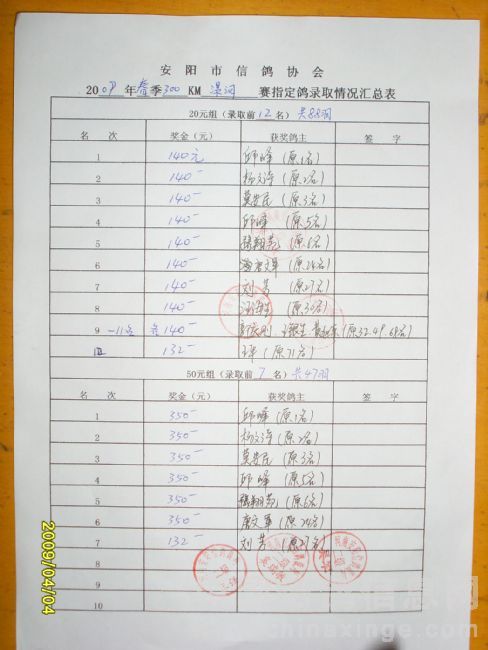 安阳市信鸽协会
2009年春季300KM 漯河 赛指定鸽录取情况汇总表
20元组（录取前12名）共88羽
名次 奖金（元） 获奖鸽主 签字
1 140元 邱峰（原1名）
2 140- 杨文涛（原2名）
3 140- 莫安民（原3名）
4 140- 邱峰（原5名）
5 140- （原6名）
6 140- 唐文军（原24名）
7 140- 刘芳（原27名）
8 140- （原30名）
9 -11名 各140- （原32.49.68名）
132- （原71名）
50元组（录取前7名）共47羽
名次 奖金（元） 获奖鸽主 签字
1 350- 邱峰（原1名）
2 350- 杨文涛（原2名）
3 350- 莫安民（原3名）
4 350- 邱峰（原5名）
5 350- （原6名）
6 350- 唐文军（原24名）
7 132- 刘芳（原27名）
8
9
10
2009/04/04
chinaxinge.com